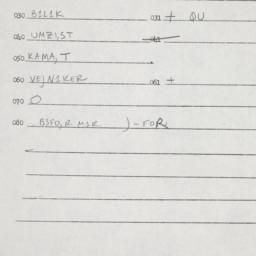 030 B1L1K 031 + QU
040 UMZI,ST
050 KAMA,T
060 VEJN1KER 061 +
070 O
080 B3FO,R M1R )-FOR